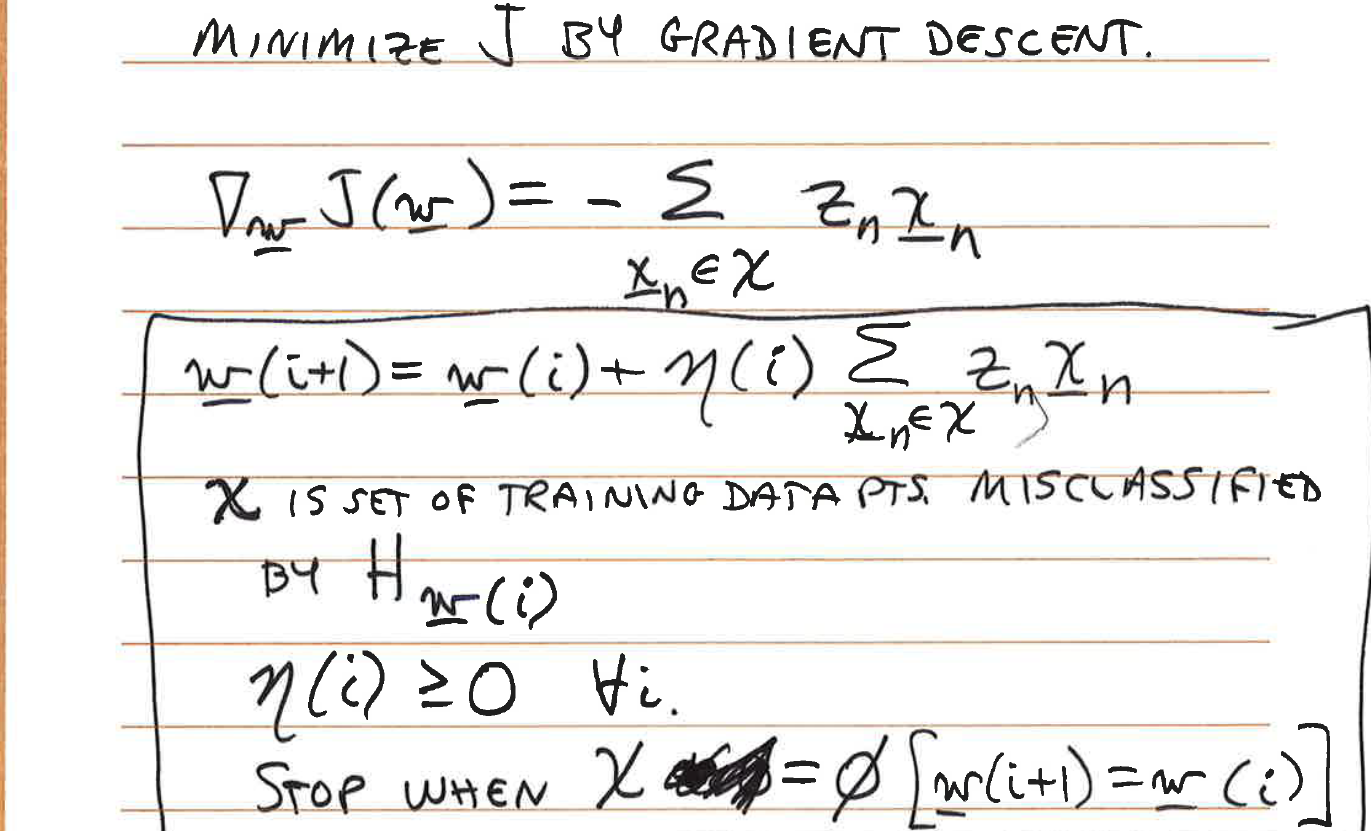 MINIMIZE J BY GRADIENT DESCENT.
∇_w̲ J(w̲) = - Σ z_n x̲_n
x̲_n ∈ χ
w̲(i+1) = w̲(i) + η(i) Σ z_n x̲_n
x̲_n ∈ χ
χ IS SET OF TRAINING DATA PTS. MISCLASSIFIED
BY H_w̲(i)
η(i) ≥ 0 ∀i.
STOP WHEN χ = ∅ [w̲(i+1) = w̲(i)]